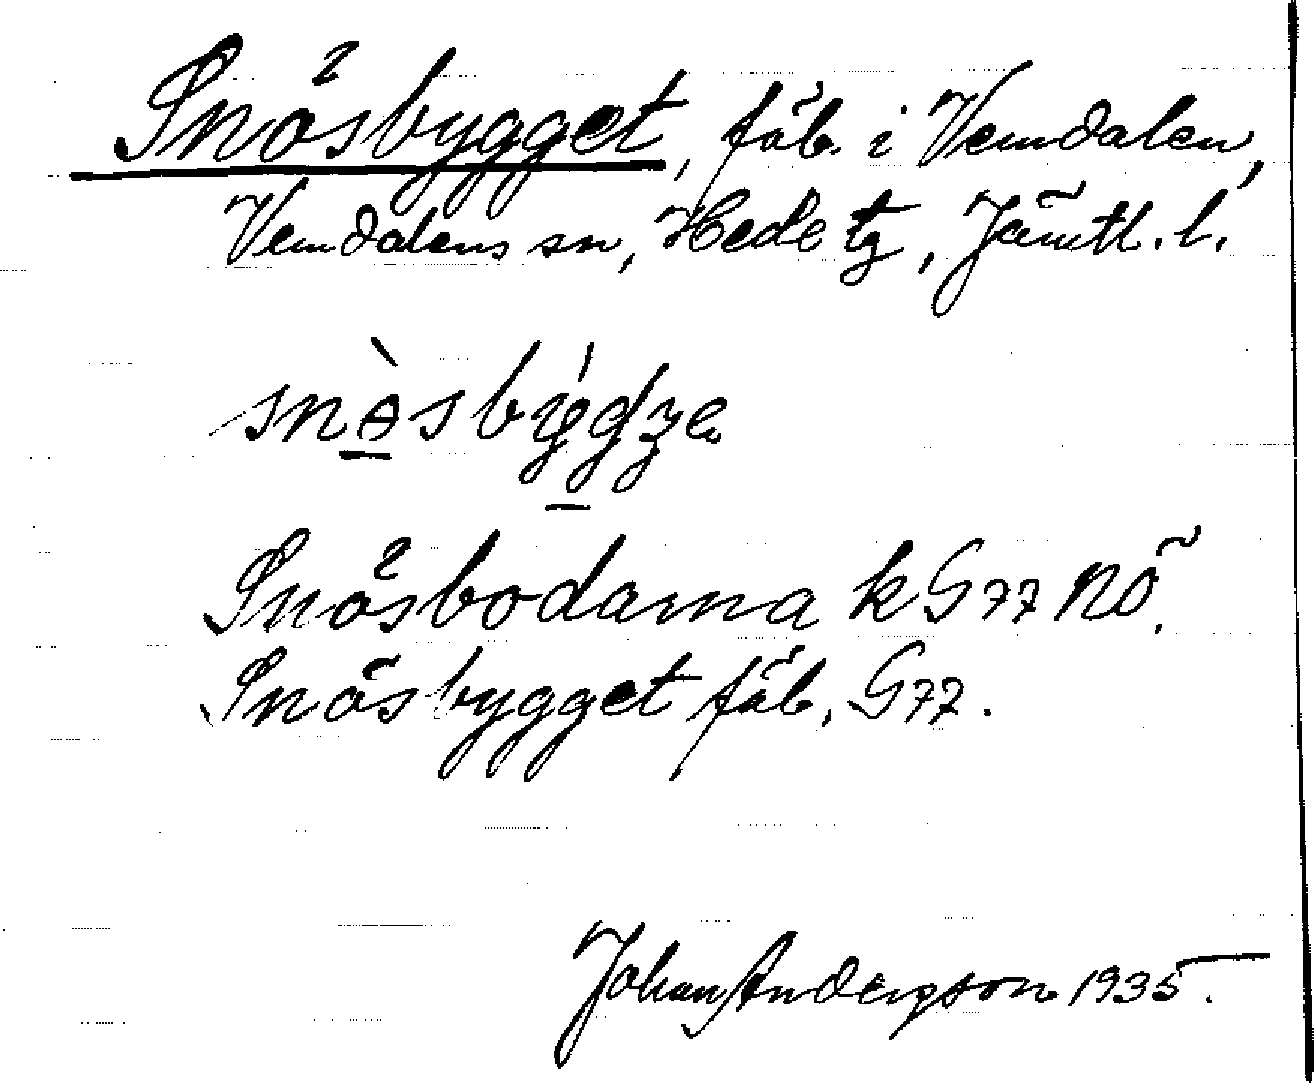 Snösbygget, fäb. i Vemdalen,
Vemdalens sn, Hede tg, Jämtl. l.
Snösbodarna k G77 NÖ.
Snösbygget fäb, G77.
Johan Anderson 1935.